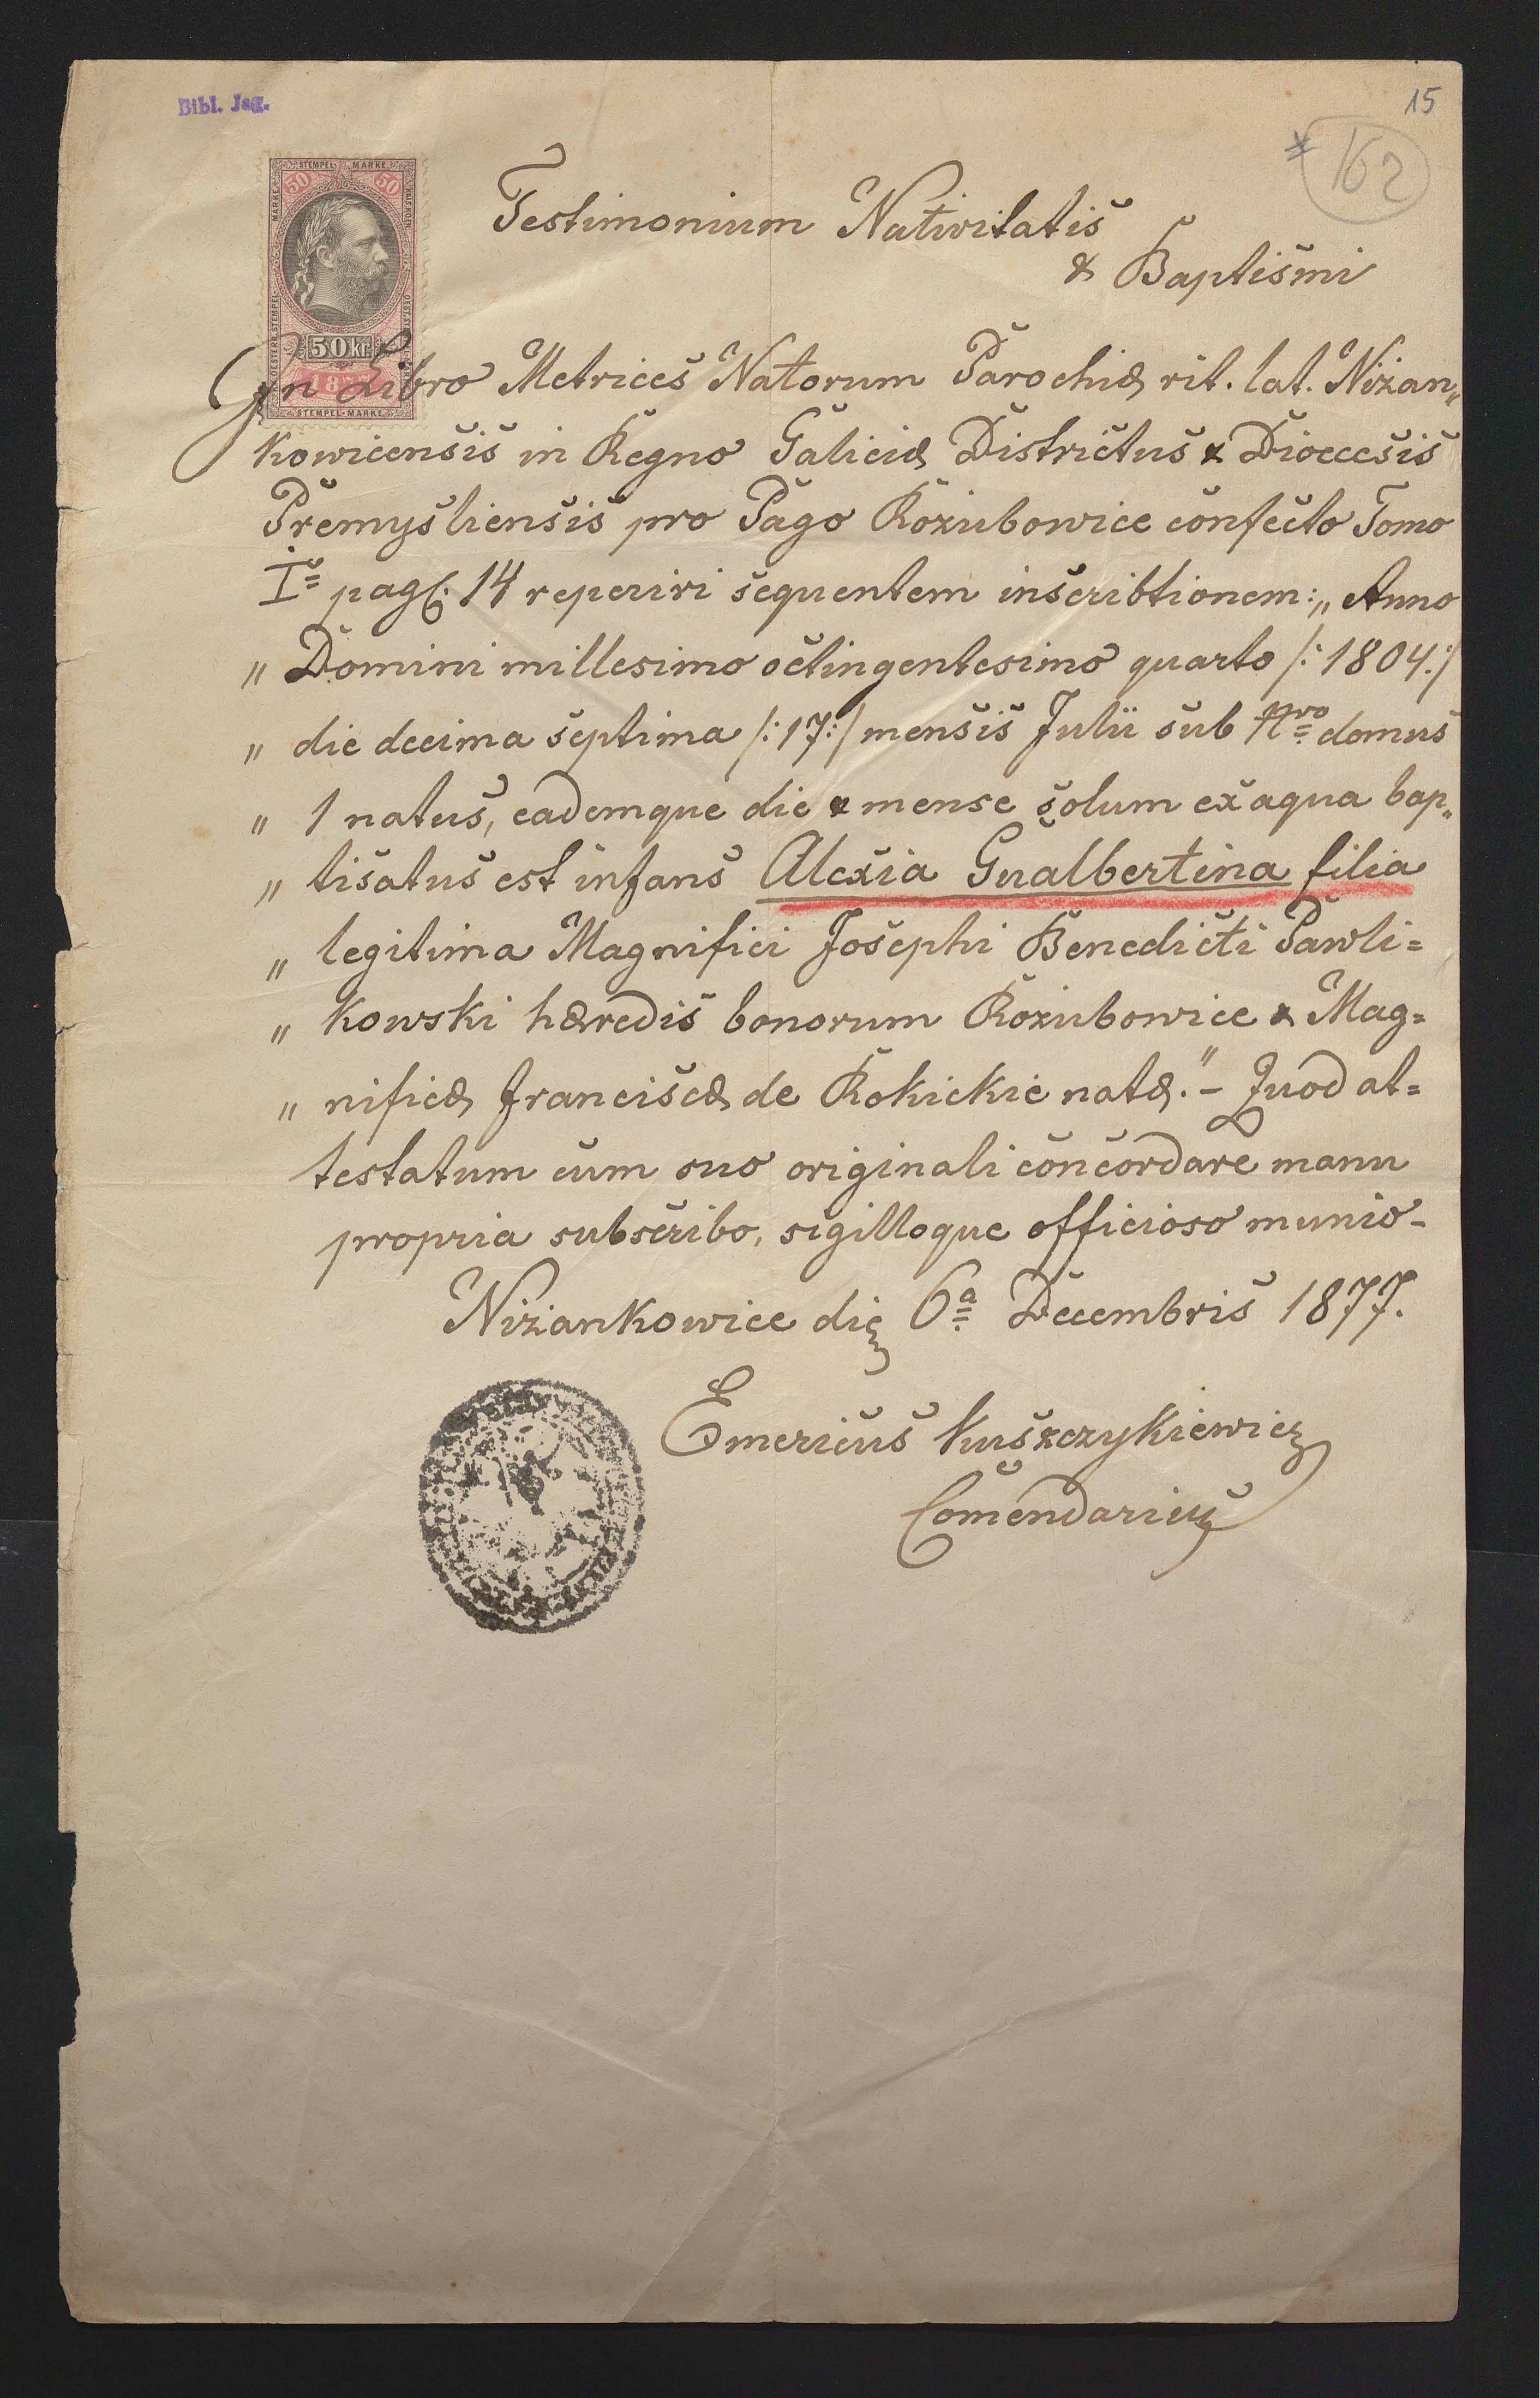 Bibl. Jag.
15
* 162
STEMPEL MARKE
50 50
50 kr.
STEMPEL-MARKE
Testimonium Nativitatis
& Baptismi
In Libro Metrices Natorum Parochiæ rit. lat. Nizan„
kowicensis in Regno Galiciæ Districtus & Dioecesis
Premysliensis pro Pago Rozubowice confecto Tomo
I= pag. 14 reperiri sequentem inscribtionem: „Anno
„ Domini millesimo octingentesimo quarto /: 1804 :/
„ die decima septima /: 17 :/ mensis Julii sub Nro domus
„ 1 natus, eademque die & mense solum ex aqua bap„
„ tisatus est infans Alexia Gualbertina filia
„ legitima Magnifici Josephi Benedicti Pawli=
„ kowski hæredis bonorum Rozubowice & Mag=
„ nificæ Franciscæ de Rokickie natæ." – Quod at=
testatum cum suo originali concordare manu
propria subscribo, sigilloque officioso munio –
Nizankowice die 6a Decembris 1877.
Emericus Kuszczykiewicz
Comendarius